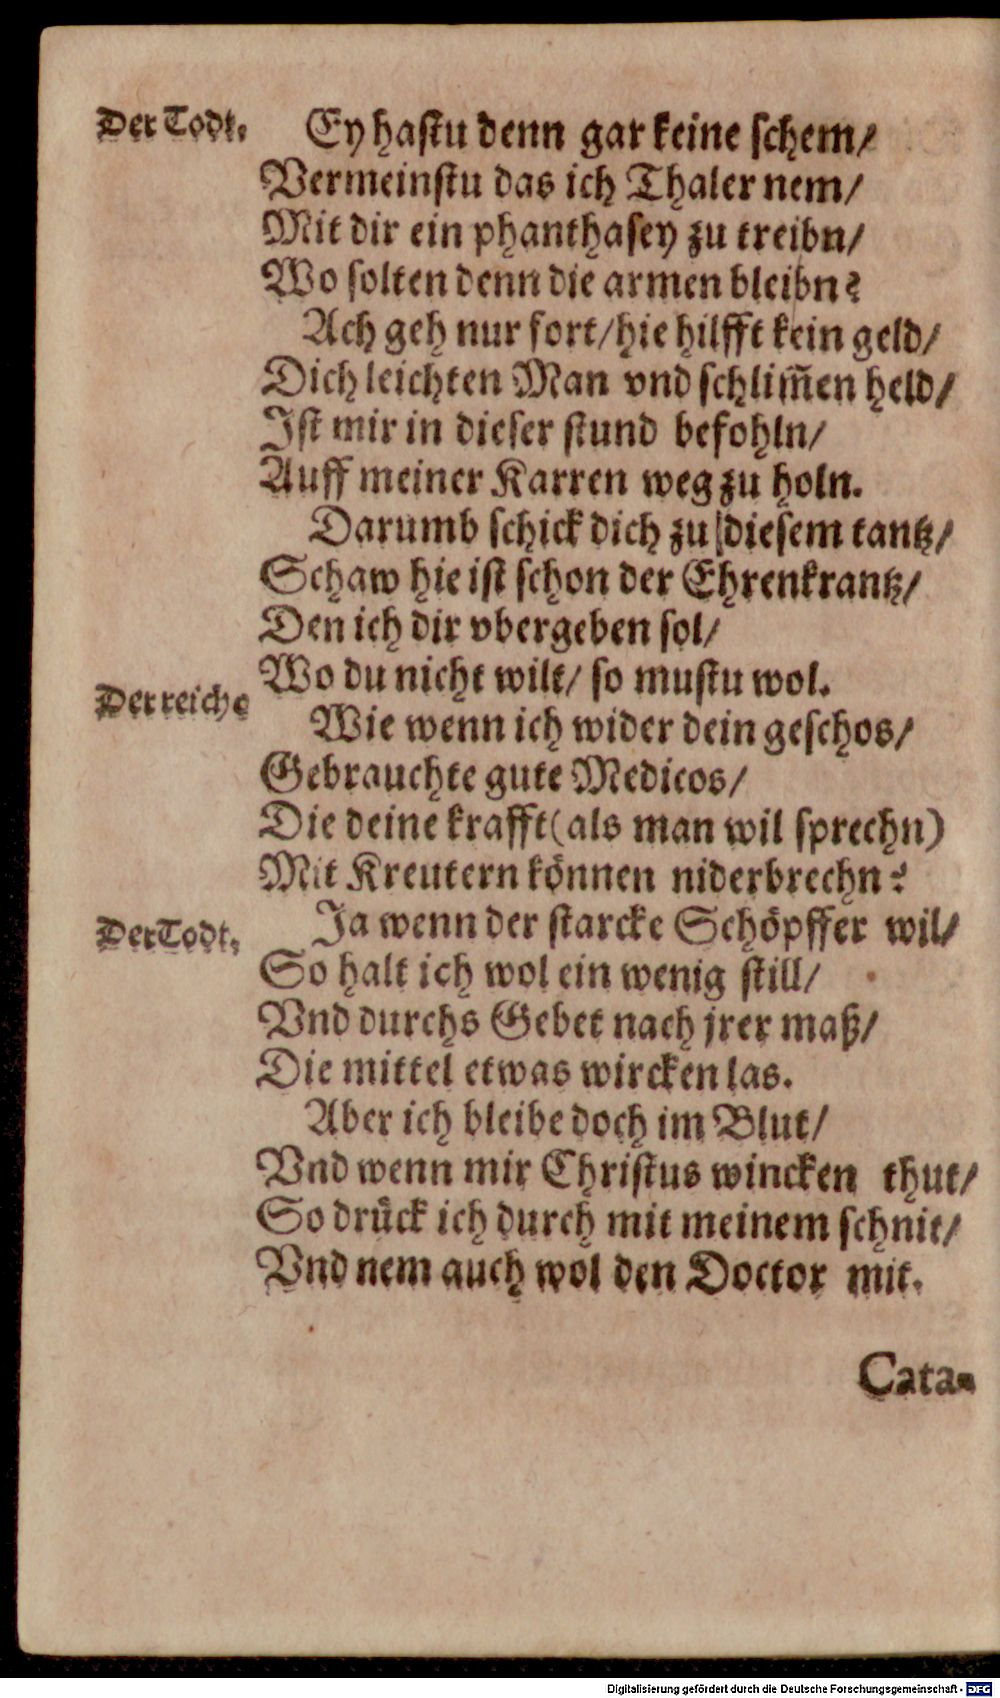 Der Todt. Ey hastu denn gar keine schem/
Vermeinstu das ich Thaler nem/
Mit dir ein phanthasey zu treibn/
Wo solten denn die armen bleibn?
Ach geh nur fort/hie hilfft kein geld/
Dich leichten Man vnd schlim̃en held/
Ist mir in dieser stund befohln/
Auff meiner Karren weg zu holn.
Darumb schick dich zu diesem tantz/
Schaw hie ist schon der Ehrenkrantz/
Den ich dir vbergeben sol/
Wo du nicht wilt/ so mustu wol.
Der reiche Wie wenn ich wider dein geschos/
Gebrauchte gute Medicos/
Die deine krafft(als man wil sprechn)
Mit Kreutern können niderbrechn?
Der Todt. Ja wenn der starcke Schöpffer wil/
So halt ich wol ein wenig still/
Vnd durchs Gebet nach jrer maß/
Die mittel etwas wircken las.
Aber ich bleibe doch im Blut/
Vnd wenn mir Christus wincken thut/
So drück ich durch mit meinem schnit/
Vnd nem auch wol den Doctor mit.
Cata-
Digitalisierung gefördert durch die Deutsche Forschungsgemeinschaft - DFG